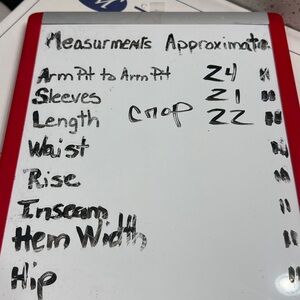 Measurments Approximate
Arm Pit to Arm Pit 24 "
Sleeves 21 "
Length crop 22 "
Waist "
Rise "
Inseam "
Hem Width "
Hip "